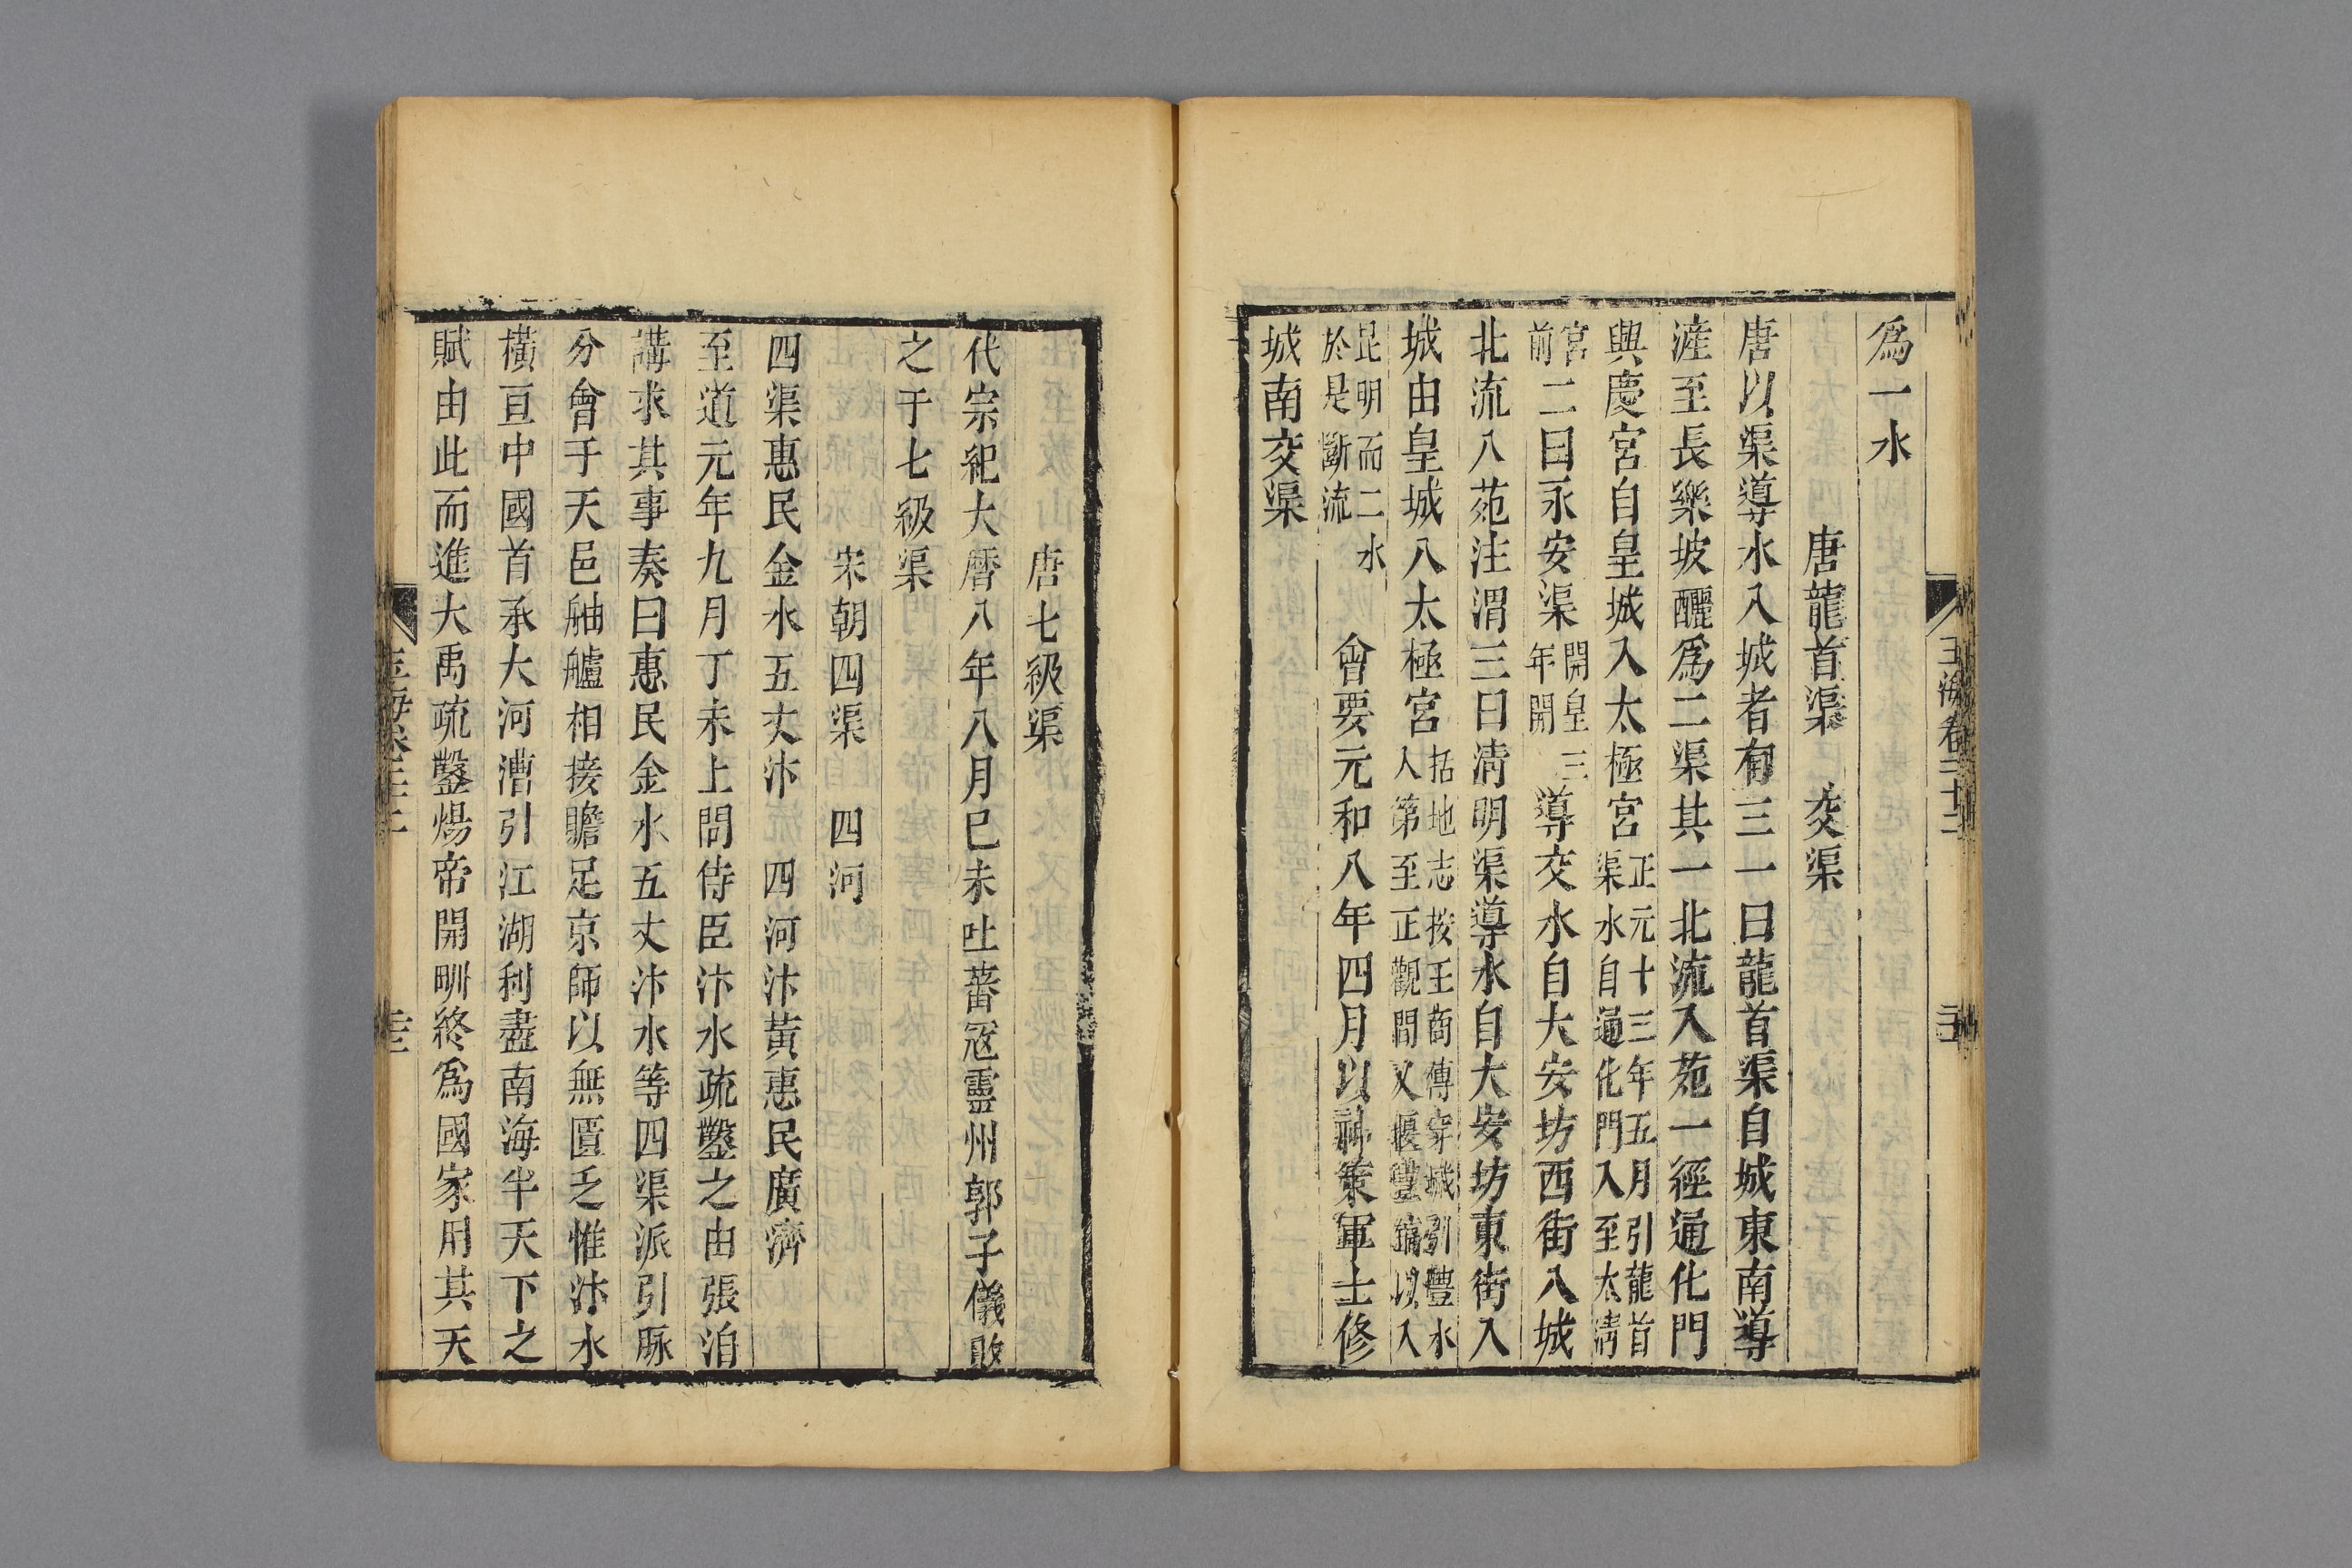 爲一水
唐龍首渠　交渠
唐以渠導水入城者有三一曰龍首渠自城東南導
滻至長樂坡釃爲二渠其一北流入苑一經通化門
興慶宮自皇城入太極宮正元十三年五月引龍首渠水自通化門入至太淸
宮前二曰永安渠開皇三年開導交水自大安坊西街入城
北流入苑注渭三曰淸明渠導水自大安坊東街入
城由皇城入太極宮括地志按王商傳穿城引豐水人第至正觀間又堰豐鎬以入
昆明而二水於是斷流　會要元和八年四月以神策軍士修
城南交渠
玉海卷二十二
唐七級渠
代宗紀大曆八年八月己未吐蕃寇靈州郭子儀敗
之于七級渠
宋朝四渠　四河
四渠惠民金水五丈汴　四河汴黃惠民廣濟
至道元年九月丁未上問侍臣汴水疏鑿之由張洎
講求其事奏曰惠民金水五丈汴水等四渠派引脉
分會于天邑舳艫相接贍足京師以無匱乏惟汴水
橫亘中國首承大河漕引江湖利盡南海半天下之
賦由此而進大禹疏鑿煬帝開甽終爲國家用其天